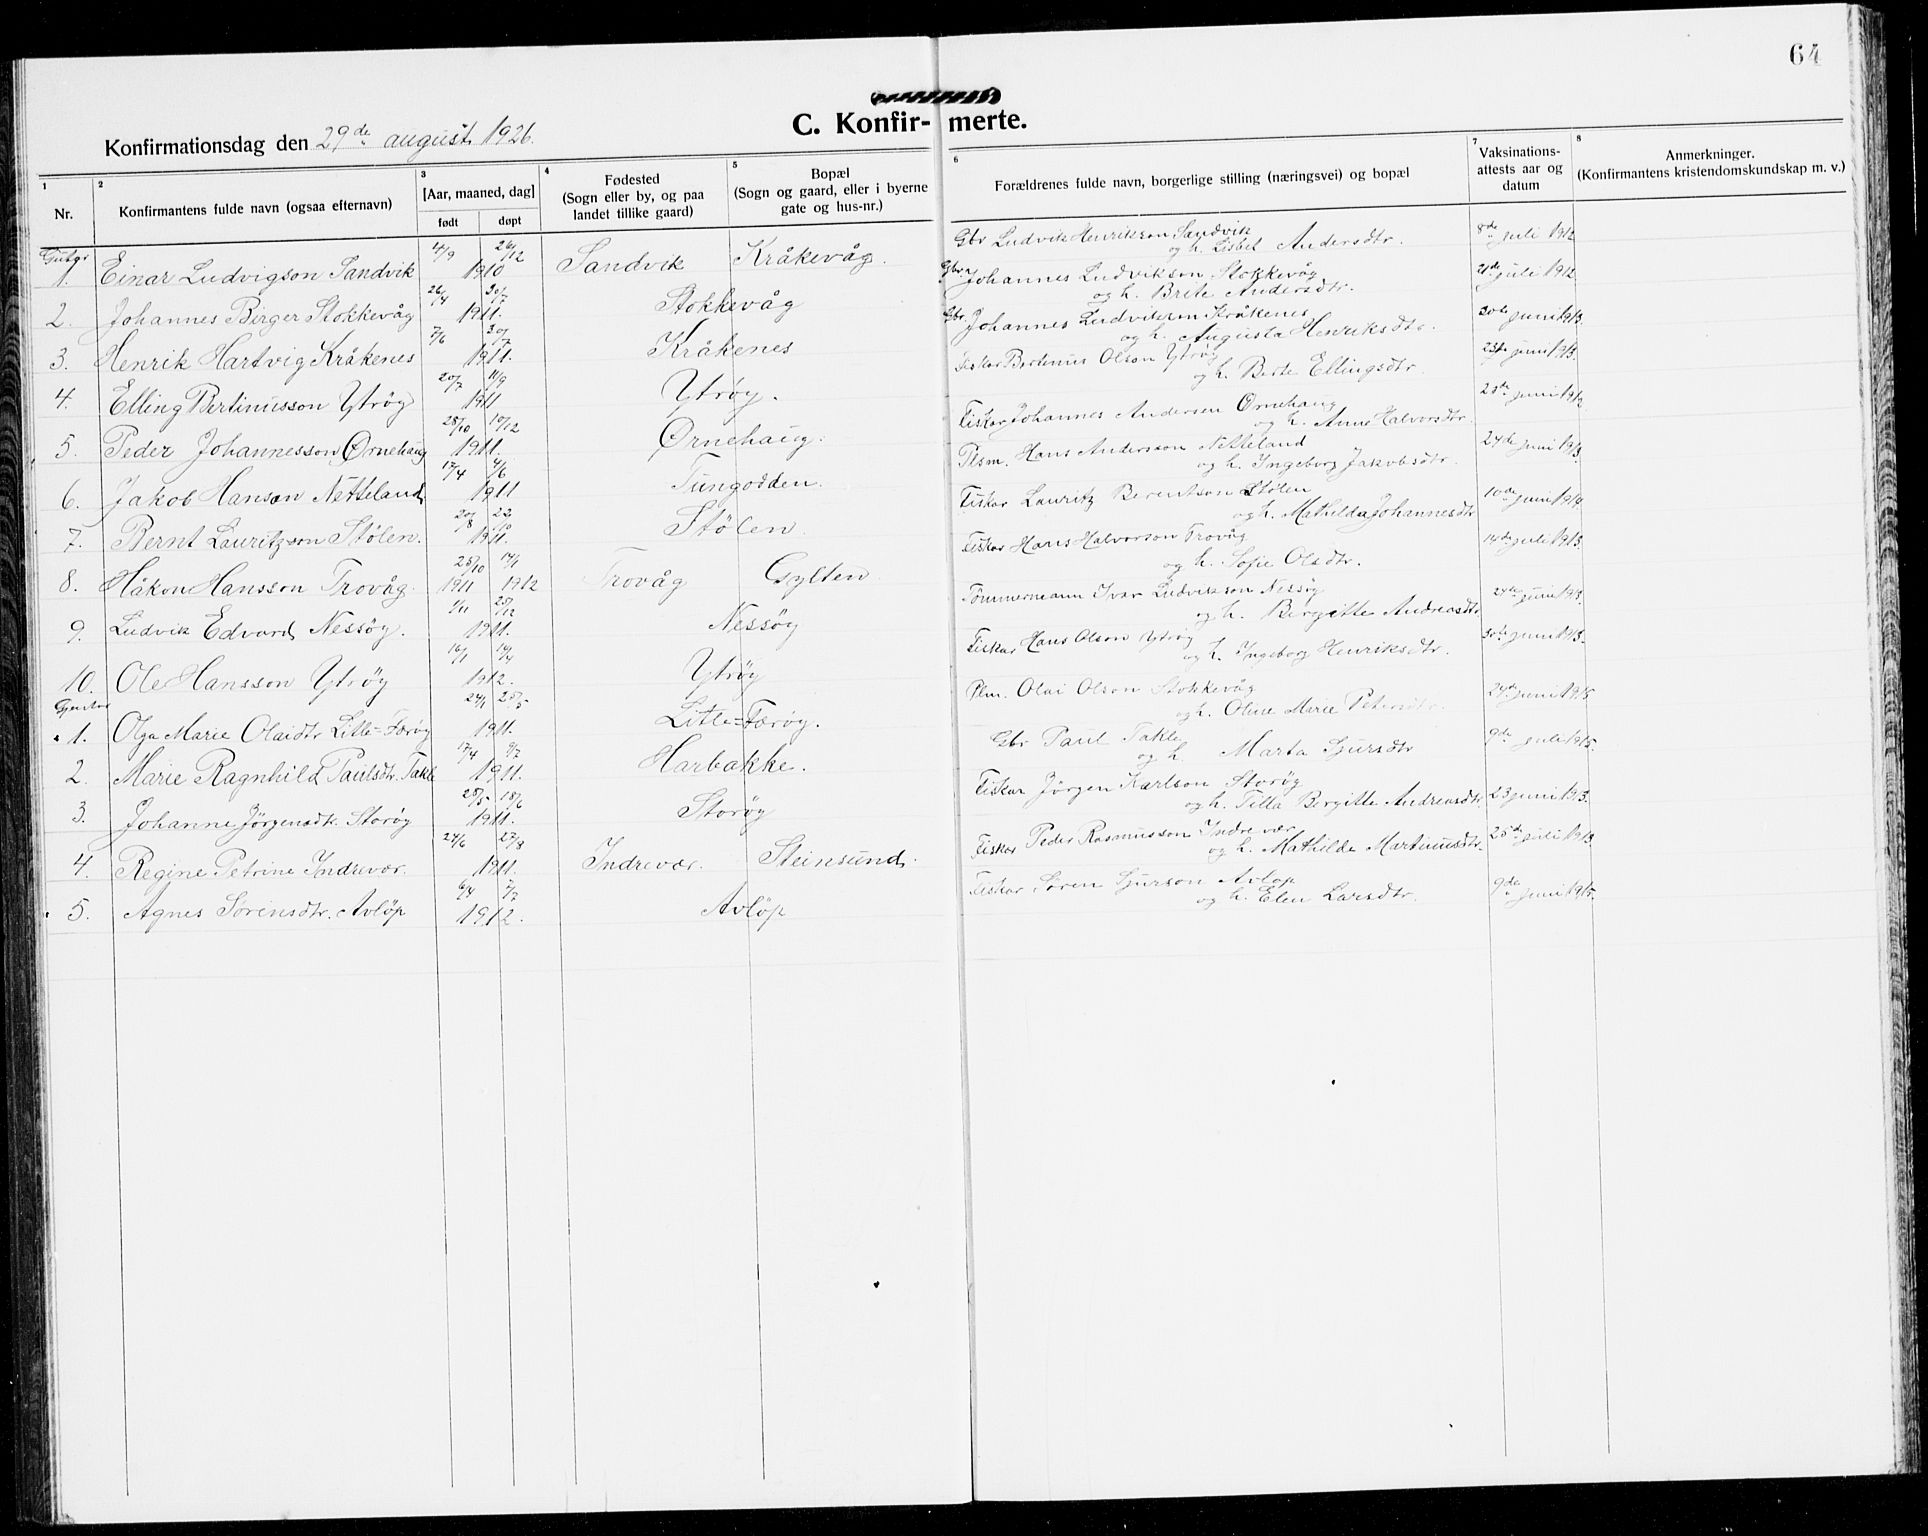 64
C. Konfirmerte.
Konfirmationsdag den 29de august 1926.
1 2 3 4 5 6 7 8
Nr.
Konfirmantens fulde navn (ogsaa efternavn)
[Aar, maaned, dag]
født døpt
Fødested
(Sogn eller by, og paa
landet tillike gaard)
Bopæl
(Sogn og gaard, eller i byerne
gate og hus-nr.)
Forældrenes fulde navn, borgerlige stilling (næringsvei) og bopæl
Vaksinations-
attests aar og
datum
Anmerkninger.
(Konfirmantens kristendomskundskap m. v.)
Gutar
1. Einar Ludvigson Sandvik 4/9 26/12 1910 Sandvik Kråkevåg. Gbr Ludvik Henrikson Sandvik 8de juli 1912
og h. Lisbet Andersdtr.
2. Johannes Birger Stokkevåg 26/4 30/7 1911. Stokkevåg Gbr. Johannes Ludvikson Stokkevåg 21de juli 1912
og h. Brite Andersdtr.
3. Henrik Hartvig Kråkenes 7/6 30/7 1911. Kråkenes Gbr. Johannes Ludvikson Kråkenes 30te juni 1913.
og h. Augusta Henriksdtr.
4. Elling Bertinusson Ytrøy 20/7 11/9 1911 Ytrøy. Fiskar Bertinus Olson Ytrøy juni 1913.
og h. Berte Ellingsdtr.
5. Peder Johannesson Ørnehaug 28/10 10/12 1911. Ørnehaug. Fiskar Johannes Andersen Ørnehaug 28de juni 1912
og h. Anne Halvorsdtr.
6. Jakob Hanson Netteland 17/4 4/6 1911 Tungodden. Plsm. Hans Andersson Netteland 24de juni 1913.
og h. Ingeborg Jakobsdtr.
7. Bernt Lauritzson Stølen. 20/8 22/10 1911. Stølen Fiskar Lauritz Berentson Stølen 10de juni 1914
og h. Mathilda Johannesdtr
8. Håkon Hansson Trovåg. 25/10 1911 14/1 1912 Trovåg Gylten Fiskar Hans Halvorson Trovåg 14de juli 1913.
og h. Sofie Olsdtr.
9. Ludvik Edvard Nessøy. 1/11 25/12 1911. Nessøy Tømmermann Ivar Ludvikson Nessøy 24de juni 1913.
og h. Bergitte Andreasdtr
10. Ole Hansson Ytrøy 16/1 14/4 1912. Ytrøy Fiskar Hans Olson Ytrøy 30te juni 1913.
og h. Ingeborg Henriksdtr.
Gjentor
1. Olga Marie Olaidtr Litle-Færøy 24/1 25/5 1911. Litle-Færøy. Plm. Olai Olson Stokkevåg 24de juni 1915
og h. Oline Marie Petersdtr.
2. Marie Ragnhild Paulsdtr. Takle 17/4 9/7 1911. Harbakke. Gbr Paul Takle 9de juli 1915.
og h. Marta Sjursdtr
3. Johanne Jørgensdtr. Storøy 28/5 18/6 1911. Storøy Fiskar Jørgen Karlson Storøy 23 juni 1913.
og h. Tilla Bergitte Andreasdtr
4. Regine Petrine Indrevær. 24/6 27/8 1911. Indrevær. Steinsund. Fiskar Peder Rasmusson Indrevær 25de juli 1913
og h. Mathilde Martinusdtr.
5. Agnes Sørensdtr. Avløp 6/4 7/7 1912. Avløp Fiskar Søren Sjurson Avløp 9de juni 1915.
og h. Elen Larsdtr.